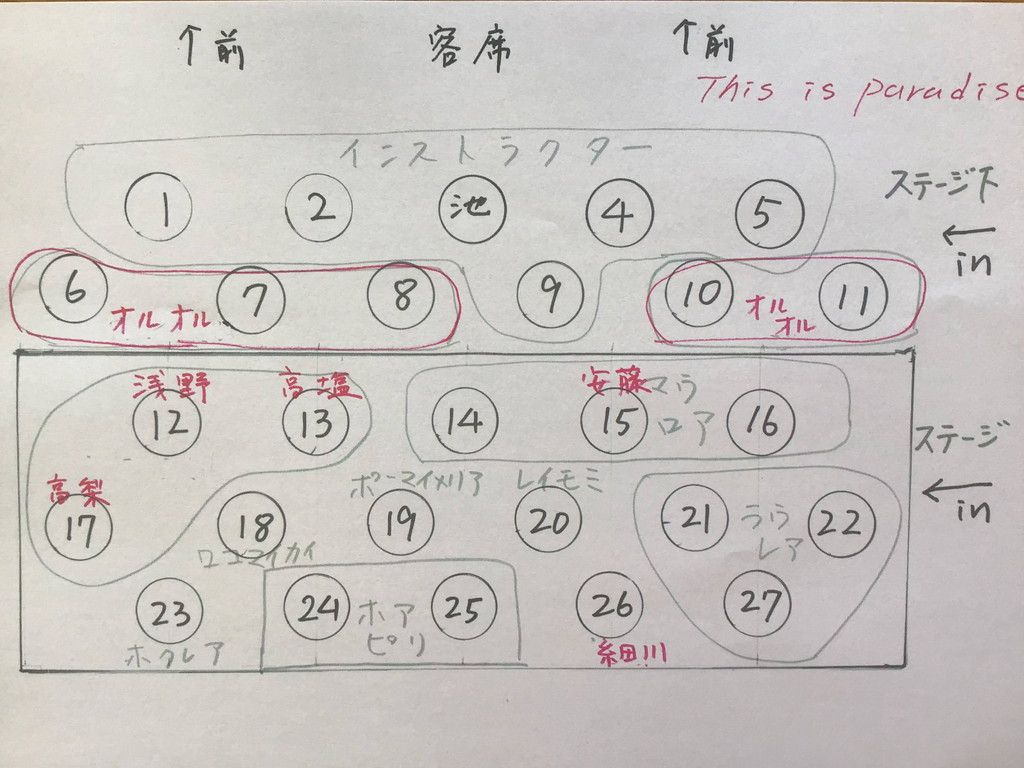 ↑前 客席 ↑前
This is paradise
インストラクター
ステージ下
1 2 池 4 5
← in
6 7 8 9 10 11
オルオル
オルオル
浅野 高塩 安藤 マウロア
12 13 14 15 16
ステージ
← in
高梨 ポーマイメリア レイモミ
17 18 19 20 21 ラウレア 22
ロゴマイカイ
23 24 ホアピリ 25 26 27
ホクレア 細田川